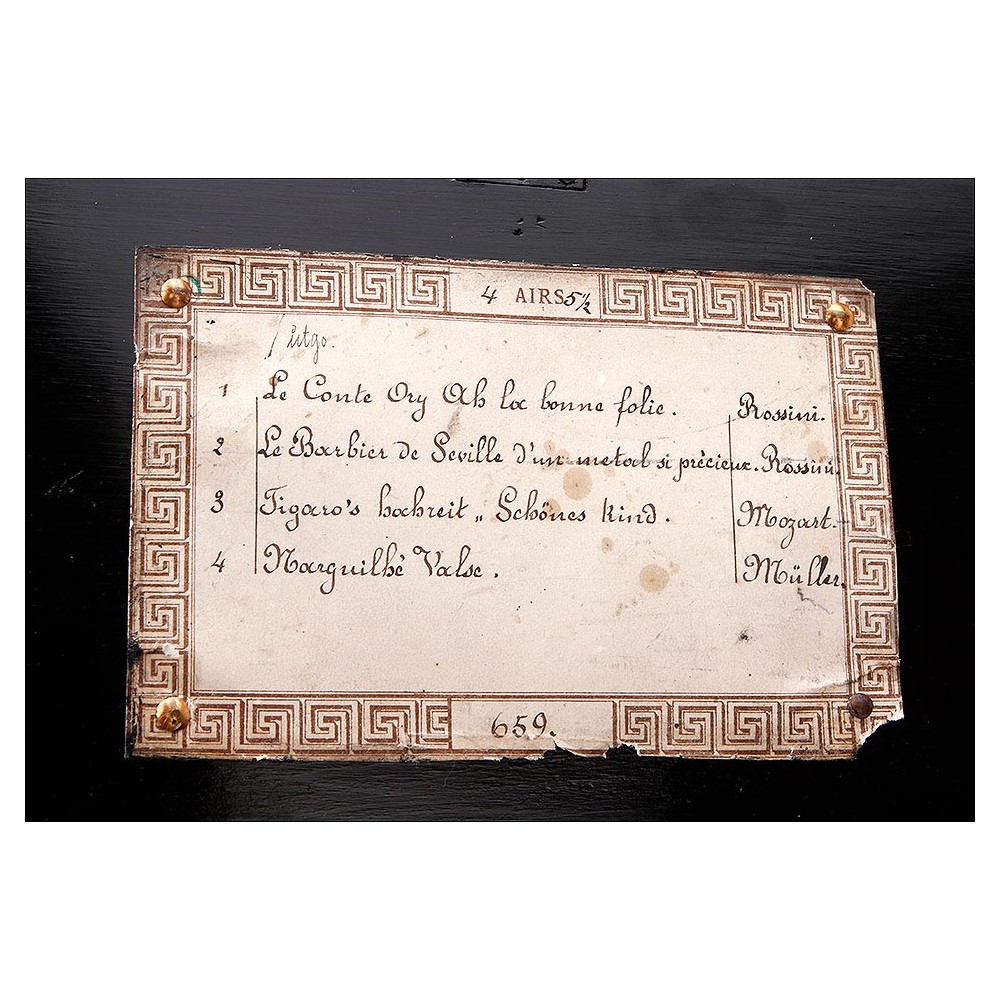 4 AIRS 5½
1 Le Conte Ory Ah la bonne folie. Rossini.
2 Le Barbier de Seville d'un metal si précieux. Rossini.
3 Figaro's hochreit „ Schönes Kind. Mozart.
4 Narguilhé Valse. Müller.
659.